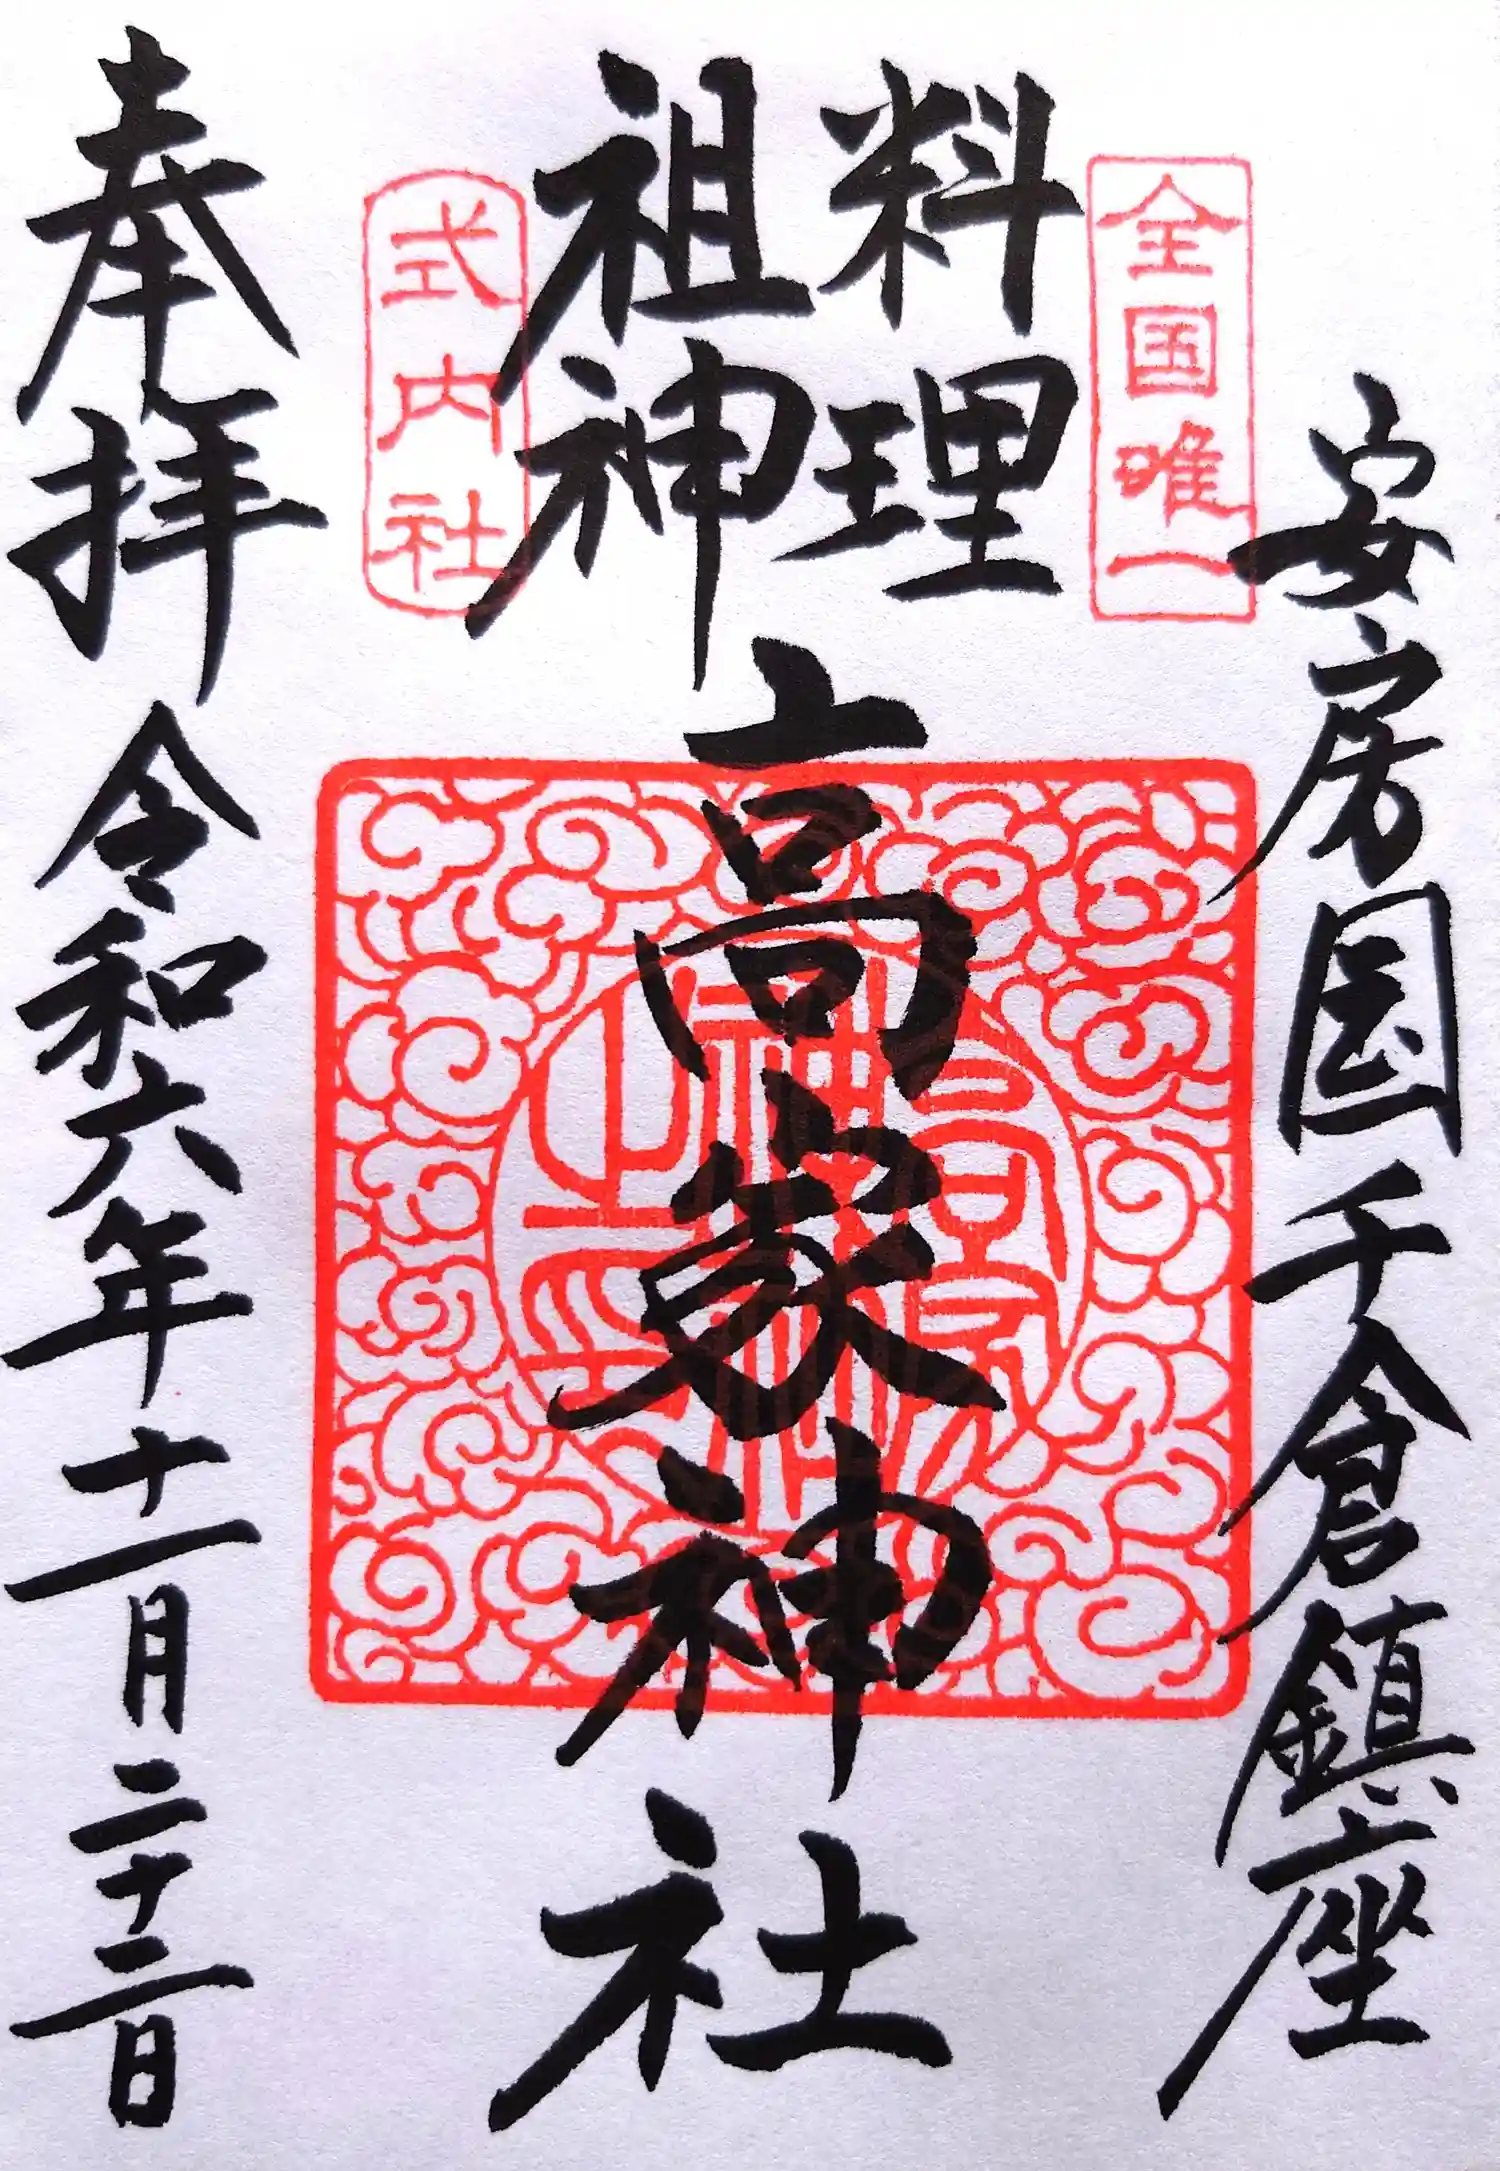 安房国千倉鎮座
全国唯一
料理
祖神
高家神社
式内社
奉拝 令和六年十一月二十二日